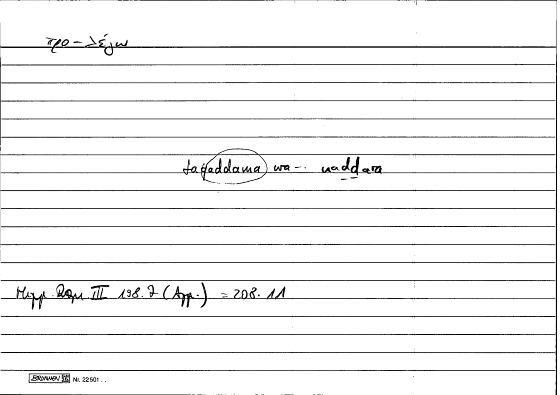 προ-λέγω
taqaddama wa-.. naddara
Hipp. Diaet. III 198.7 (App.) = 208.11
BRUNNEN Nr. 22501 ..